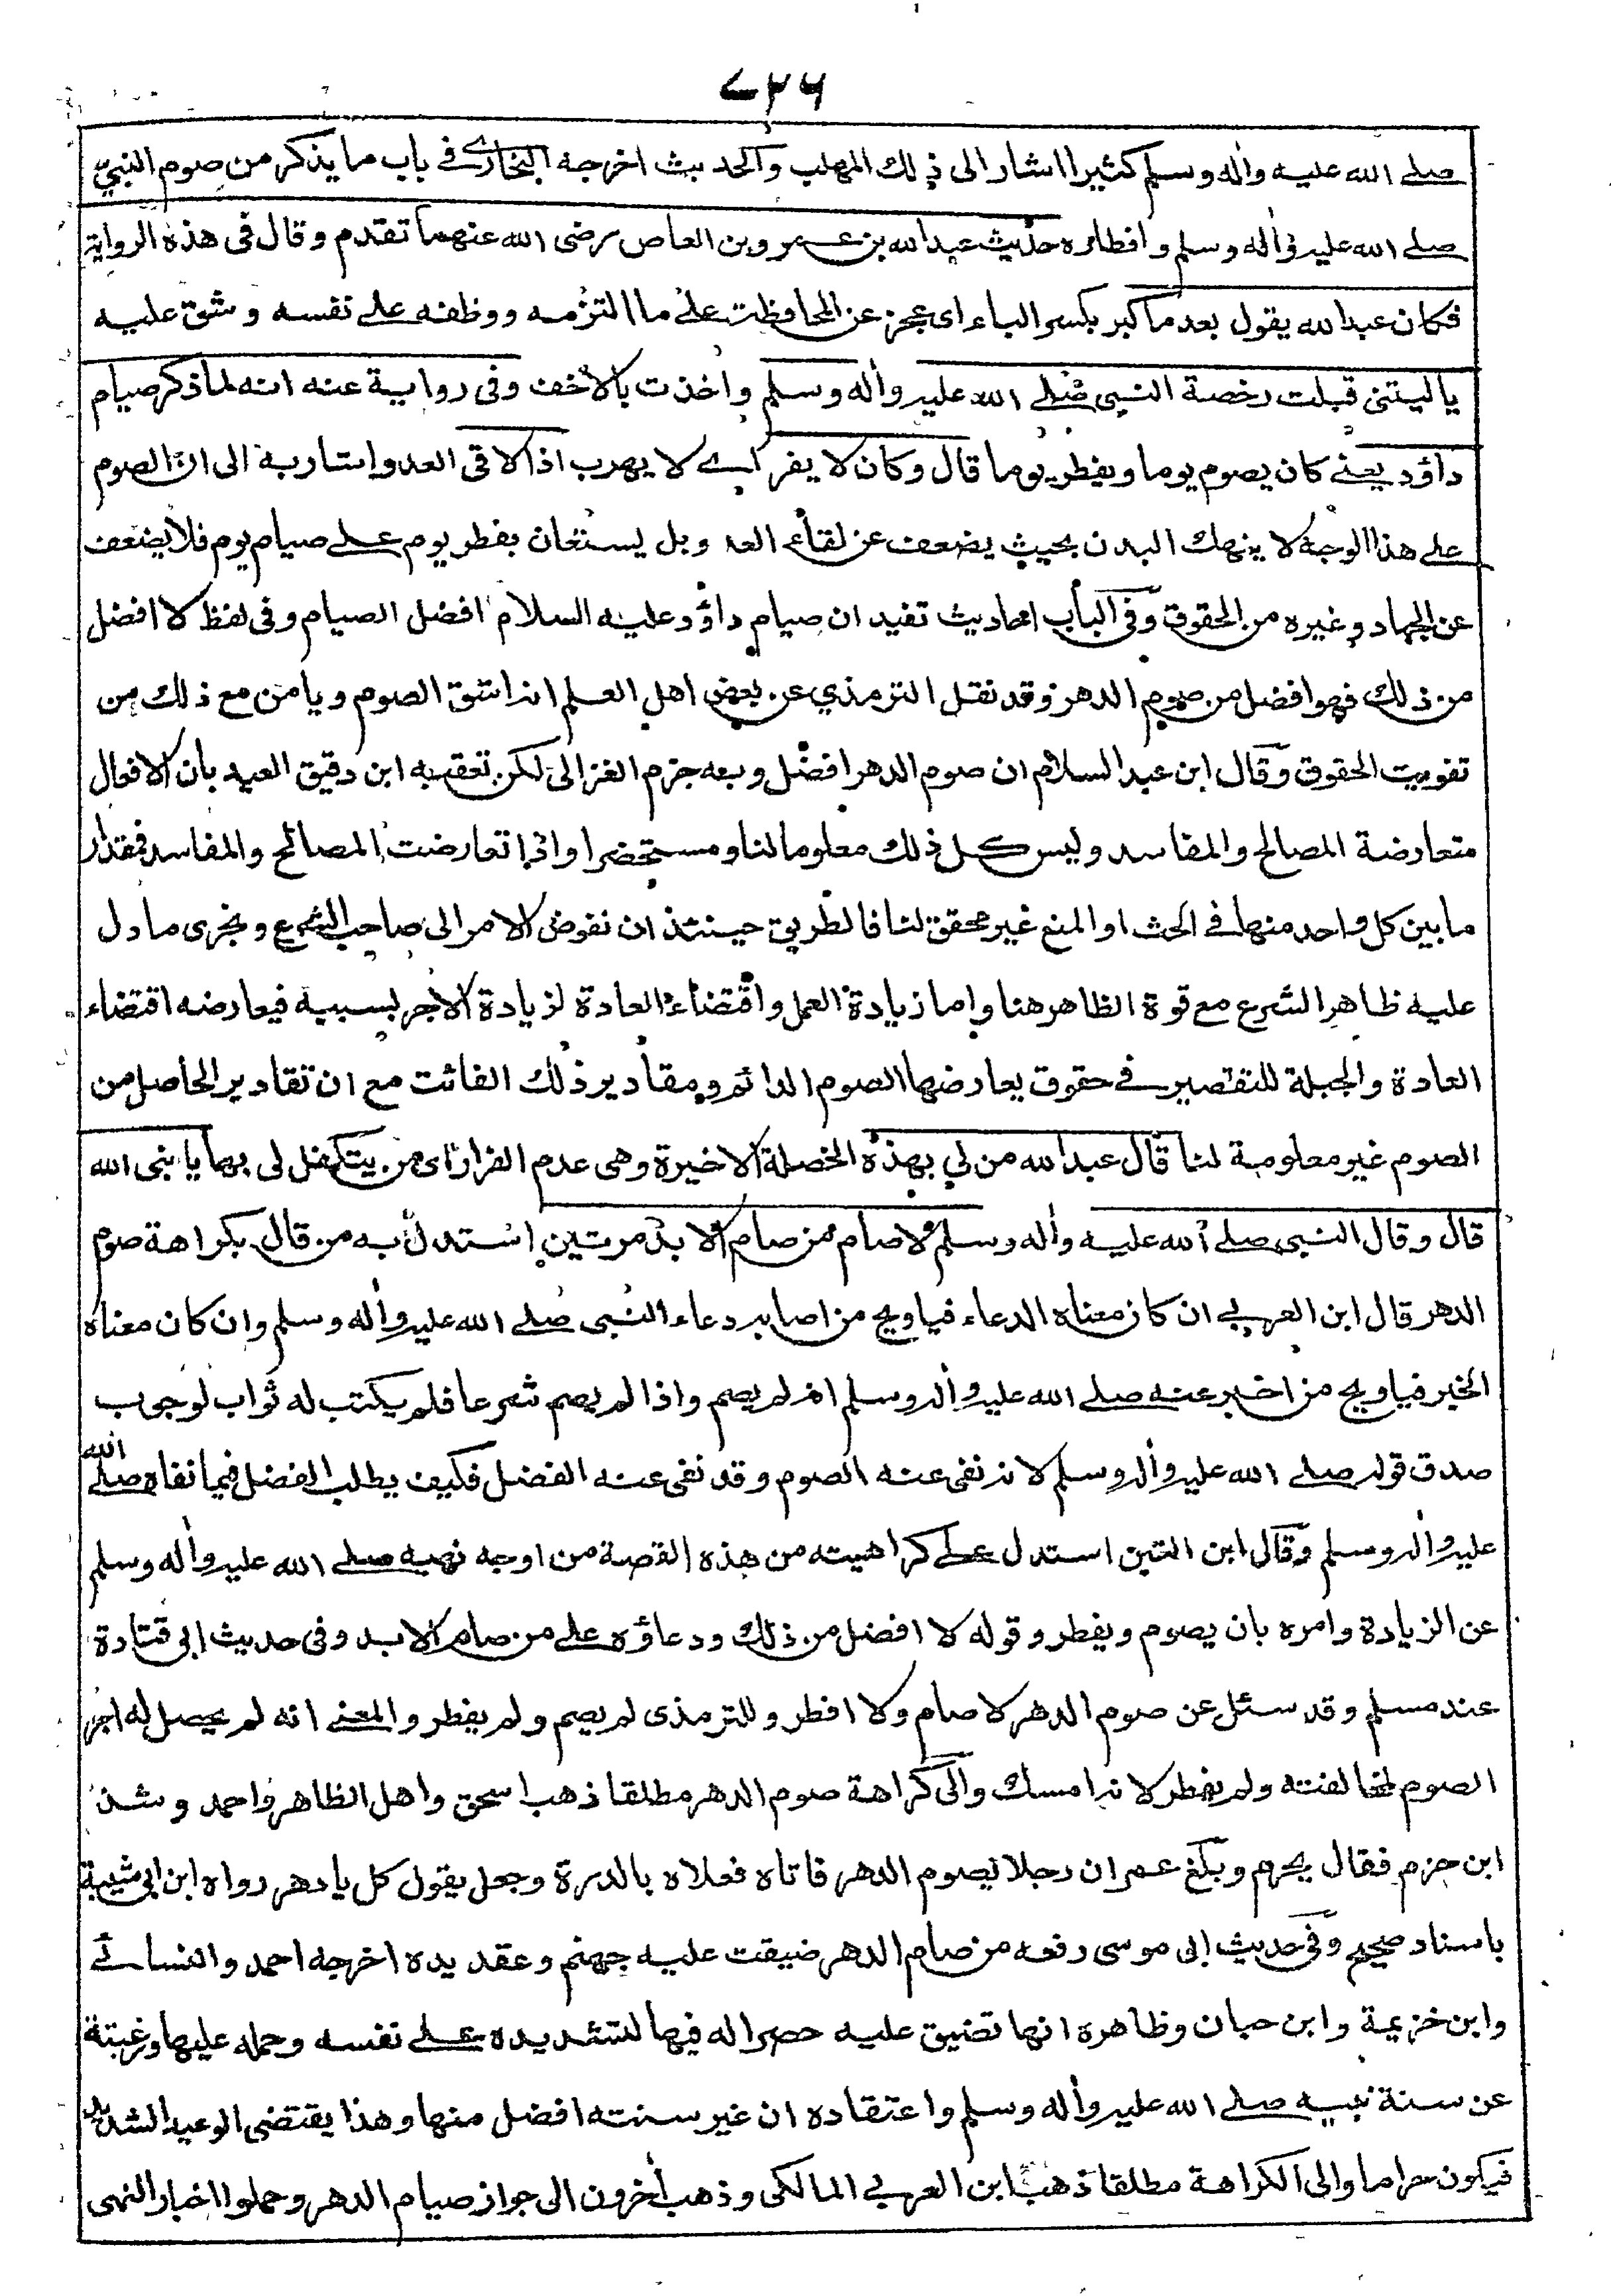 ٧٢٦
صلے الله عليه واٰله وسلم كثيرا اشار الى ذلك المهلب والحديث اخرجه البخارے فے باب ما يذكر من صوم النبىّ
صلے الله عليه واٰله وسلم وافطاره حديث عبد الله بن عمرو بن العاص رضى الله عنهما تقدم وقال فى هذه الرواية
فكان عبد الله يقول بعد ما كبر بكسر الباء اى عجز عن المحافظة علے ما التزمه ووظفه علے نفسه وشق عليه
يا ليتنى قبلت رخصة النبى صلے الله عليه واٰله وسلم واخذت بالاخف وفى رواية عنه انه لما ذكر صيام
داؤد يعنے كان يصوم يوما ويفطر يوما قال وكان لا يفر اے لا يهرب اذا لاقى العدو اشار به الى ان الصوم
علے هذا الوجه لا ينهك البدن بحيث يضعف عن لقاء العدو بل يستعان بفطر يوم علے صيام يوم فلا يضعف
عن الجهاد وغيره من الحقوق وفى الباب احاديث تفيد ان صيام داؤد عليه السلام افضل الصيام وفى لفظ لا افضل
من ذلك فهو افضل من صوم الدهر وقد نقل الترمذي عن بعض اهل العلم انه اشق الصوم ويامن مع ذلك من
تفويت الحقوق وقال ابن عبد السلام ان صوم الدهر افضل وبه جزم الغزالى لكن تعقبه ابن دقيق العيد بان الافعال
متعارضة المصالح والمفاسد وليس كل ذلك معلوما لنا ومستحضرا واذا تعارضت المصالح والمفاسد فمقدار
ما بين كل واحد منها فے الحث او المنع غير محقق لنا فالطريق حينئذ ان نفوض الامر الى صاحب الشرع ونجرى ما دل
عليه ظاهر الشرع مع قوة الظاهر هنا واما زيادة العمل واقتضاء العادة لزيادة الاجر بسببه فيعارضه اقتضاء
العادة والجبلة للتقصير فے حقوق يعارضها الصوم الدائم ومقادير ذلك الفائت مع ان تقادير الحاصل من
الصوم غير معلومة لنا قال عبد الله من لي بهذه الخصلة الاخيرة وهى عدم الفرار اى من يتكفل لى بها يا نبى الله
قال وقال النبى صلے الله عليه واٰله وسلم لا صام من صام الابد مرتين استدل به من قال بكراهة صوم
الدهر قال ابن العربے ان كان معناه الدعاء فياويح من اصابه دعاء النبى صلے الله عليه واٰله وسلم وان كان معناه
الخبر فياويح من اخبر عنه صلے الله عليه واٰله وسلم انه لم يصم واذا لم يصم شرعا فلم يكتب له ثواب لوجوب
صدق قوله صلے الله عليه واٰله وسلم لانه نفى عنه الصوم وقد نفى عنه الفضل فكيف يطلب الفضل فيما نفاه صلے الله
عليه واٰله وسلم وقال ابن التين استدل علے كراهيته من هذه القصة من اوجه نهيه صلے الله عليه واٰله وسلم
عن الزيادة وامره بان يصوم ويفطر وقوله لا افضل من ذلك ودعاؤه علے من صام الابد وفى حديث ابى قتادة
عند مسلم وقد سئل عن صوم الدهر لا صام ولا افطر وللترمذى لم يصم ولم يفطر والمعنے انه لم يحصل له اجر
الصوم لمخالفته ولم يفطر لانه امسك والى كراهة صوم الدهر مطلقا ذهب اسحق واهل الظاهر واحمد وشذ
ابن حزم فقال يحرم وبلغ عمر ان رجلا يصوم الدهر فاتاه فعلاه بالدرة وجعل يقول كل يا دهر رواه ابن ابى شيبة
باسناد صحيح وفى حديث ابى موسى رفعه من صام الدهر ضيقت عليه جهنم وعقد يده اخرجه احمد والنسائے
وابن خزيمة وابن حبان وظاهره انها تضيق عليه حصرا له فيها لتشديده علے نفسه وحمله عليها ورغبته
عن سنة نبيه صلے الله عليه واٰله وسلم واعتقاده ان غير سنته افضل منها وهذا يقتضى الوعيد الشديد
فيكون حراما والى الكراهة مطلقا ذهب ابن العربے المالكى وذهب اٰخرون الى جواز صيام الدهر وحملوا اخبار النهى